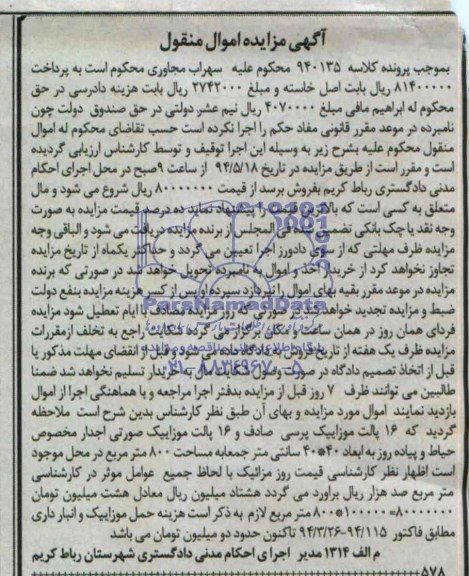 آگهی مزایده اموال منقول
بموجب پرونده کلاسه ۹۴۰۱۳۵ محکوم علیه سهراب مجاوری محکوم است به پرداخت
۸۱۴۰۰۰۰۰ ریال بابت اصل خاسته و مبلغ ۲۷۴۲۰۰۰ ریال بابت هزینه دادرسی در حق
محکوم له ابراهیم مافی مبلغ ۴۰۷۰۰۰۰ ریال نیم عشر دولتی در حق صندوق دولت چون
نامبرده در موعد مقرر قانونی مفاد حکم را اجرا نکرده است حسب تقاضای محکوم له اموال
منقول محکوم علیه بشرح زیر به وسیله این اجرا توقیف و توسط کارشناس ارزیابی گردیده
است و مقرر است از طریق مزایده در تاریخ ۹۴/۵/۱۸ از ساعت ۹صبح در محل اجرای احکام
مدنی دادگستری رباط کریم بفروش برسد از قیمت ۸۰۰۰۰۰۰۰ ریال شروع می شود و مال
متعلق به کسی است که بالاترین قیمت را پیشنهاد نماید ده درصد قیمت مزایده به صورت
وجه نقد یا چک بانکی تضمین شده فی المجلس از برنده مزایده دریافت می شود و الباقی وجه
مزایده ظرف مهلتی که از سوی دادورز اجرا تعیین می گردد و حداکثر یکماه از تاریخ مزایده
تجاوز نخواهد کرد از خریدار اخذ و اموال به نامبرده تحویل خواهد شد در صورتی که برنده
مزایده در موعد مقرر بقیه بهای اموال را نپردازد سپرده او پس از کسر هزینه مزایده بنفع دولت
ضبط و مزایده تجدید خواهد شد در صورتی که روز مزایده مصادف با ایام تعطیل شود مزایده
فردای همان روز در همان ساعت و مکان برگزار می گردد شکایت راجع به تخلف ازمقررات
مزایده ظرف یک هفته از تاریخ فروش به دادگاه داده می شود و قبل از انقضای مهلت مذکور یا
قبل از اتخاذ تصمیم دادگاه در صورت وصول شکایت مال به خریدار تسلیم نخواهد شد ضمنا
طالبین می توانند ظرف ۷ روز قبل از مزایده بدفتر اجرا مراجعه و با هماهنگی اجرا از اموال
بازدید نمایند اموال مورد مزایده و بهای آن طبق نظر کارشناس بدین شرح است ملاحظه
گردید که ۱۶ پالت موزاییک پرسی صادف و ۱۶ پالت موزاییک صورتی اجدار مخصوص
حیاط و پیاده روز به ابعاد ۴۰*۴۰ سانتی متر جمعابه مساحت ۸۰۰ متر مربع در محل موجود
است اظهار نظر کارشناسی قیمت روز مزائیک با لحاظ جمیع عوامل موثر در کارشناسی
متر مربع صد هزار ریال براورد می گردد هشتاد میلیون ریال معادل هشت میلیون تومان
۸۰۰۰۰۰۰۰=۱۰۰۰۰۰*۸۰۰ متر مربع لازم به ذکر است هزینه حمل موزاییک و انبار داری
مطابق فاکتور ۹۴/۱۱۵-۹۴/۳/۲۶ تاکنون حدود دو میلیون تومان می باشد
م الف ۱۳۱۴ مدیر اجرای احکام مدنی دادگستری شهرستان رباط کریم
۵۷۸
ParsNamadData
۰۲۱-۸۸۳۴۹۶۷۰-۵